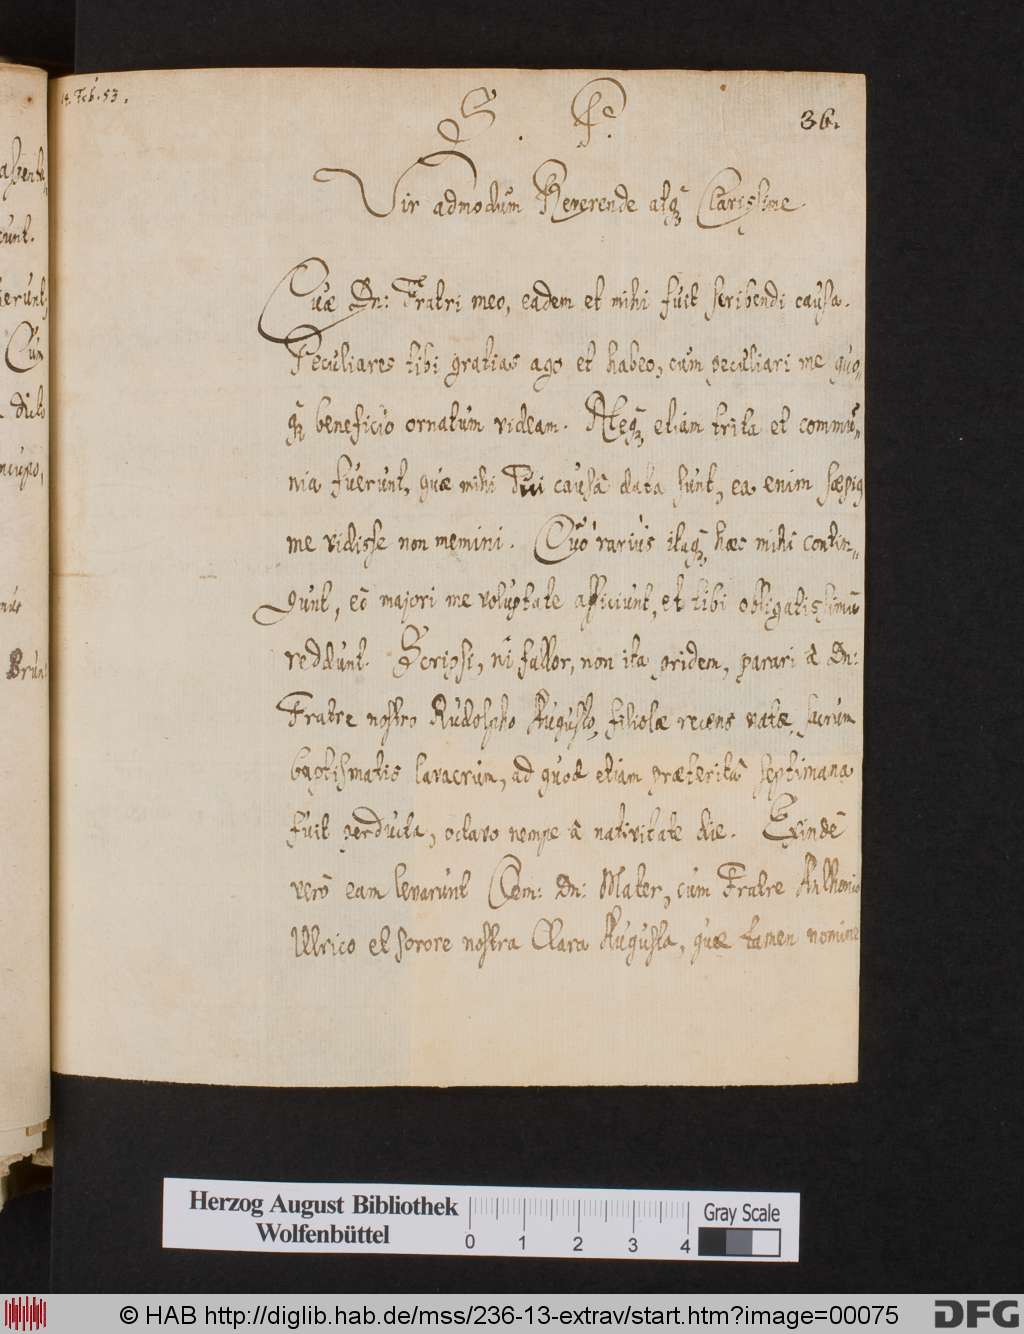 14. Feb. 53.
S. P.
36.
Vir admodum Reverende atq; Clarissime
Quæ Dn: Fratri meo, eadem et mihi fuit scribendi causa.
Peculiares tibi gratias ago et habeo, cum peculiari me quo„
q; beneficio ornatum videam. Neq; etiam trita et commu„
nia fuerunt, quæ mihi Tui causâ data sunt, ea enim sæpiq
me vidisse non memini. Quò rarius itaq; hæc mihi contin„
gunt, eò majori me voluptate afficiunt, et tibi obligatissimū
reddunt. Scripsi, ni fallor, non ita pridem, parari à Dn:
Fratre nostro Rudolpho Augusto, filiolæ recens natæ, sacrum
baptismatis lavacrum, ad quod etiam præteritâ septimana
fuit perducta, octavo nempe à nativitate die. Exinde
verò eam levarunt Cem: Dn: Mater, cum Fratre Anthonio
Ulrico et sorore nostra Clara Augusta, quæ tamen nomine
asente
cunt.
ierunt,
Cum
dicto
ncipio,
nus
Brun
Herzog August Bibliothek
Wolfenbüttel
0 1 2 3 4
Gray Scale
© HAB http://diglib.hab.de/mss/236-13-extrav/start.htm?image=00075
DFG